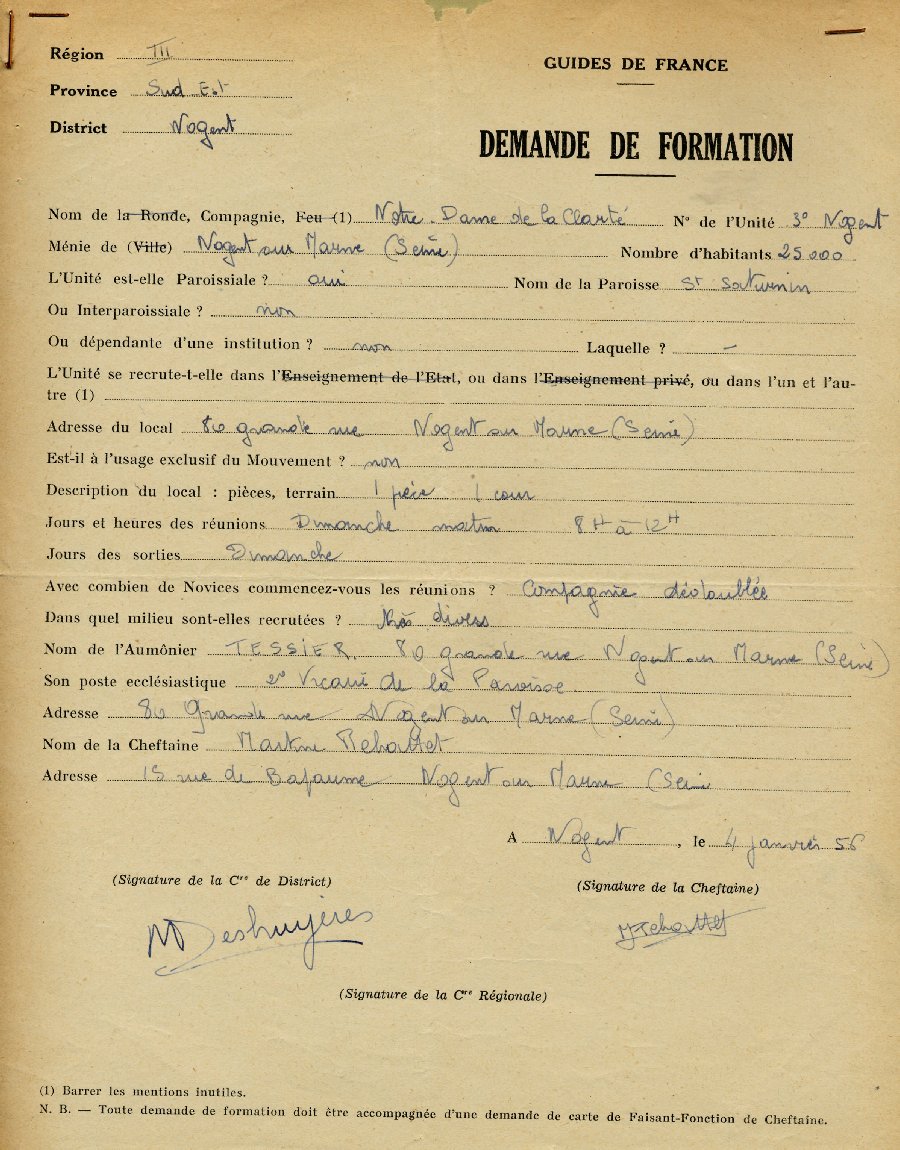 Région III
Province Sud Est
District Nogent
GUIDES DE FRANCE
DEMANDE DE FORMATION
Nom de la Ronde, Compagnie, Feu (1) Notre-Dame de la Clarté N° de l'Unité 3° Nogent
Ménie de (Ville) Nogent sur Marne (Seine) Nombre d'habitants 25 000
L'Unité est-elle Paroissiale ? oui Nom de la Paroisse St Saturnin
Ou Interparoissiale ? non
Ou dépendante d'une institution ? non Laquelle ? —
L'Unité se recrute-t-elle dans l'Enseignement de l'Etat, ou dans l'Enseignement privé, ou dans l'un et l'au-
tre (1)
Adresse du local 80 grande rue Nogent sur Marne (Seine)
Est-il à l'usage exclusif du Mouvement ? non
Description du local : pièces, terrain 1 pièce 1 cour
Jours et heures des réunions Dimanche matin 8H à 12H
Jours des sorties Dimanche
Avec combien de Novices commencez-vous les réunions ? Compagnie dédoublée
Dans quel milieu sont-elles recrutées ? divers
Nom de l'Aumônier TESSIER 80 grande rue Nogent sur Marne (Seine)
Son poste ecclésiastique 2e Vicaire de la Paroisse
Adresse 80 Grande rue Nogent sur Marne (Seine)
Nom de la Cheftaine Martine
Adresse 15 rue de Bapaume Nogent sur Marne (Seine
A Nogent, le 4 janvier 56
(Signature de la Cre de District)
(Signature de la Cheftaine)
MDeshuyères
(Signature de la Cre Régionale)
(1) Barrer les mentions inutiles.
N. B. — Toute demande de formation doit être accompagnée d'une demande de carte de Faisant-Fonction de Cheftaine.